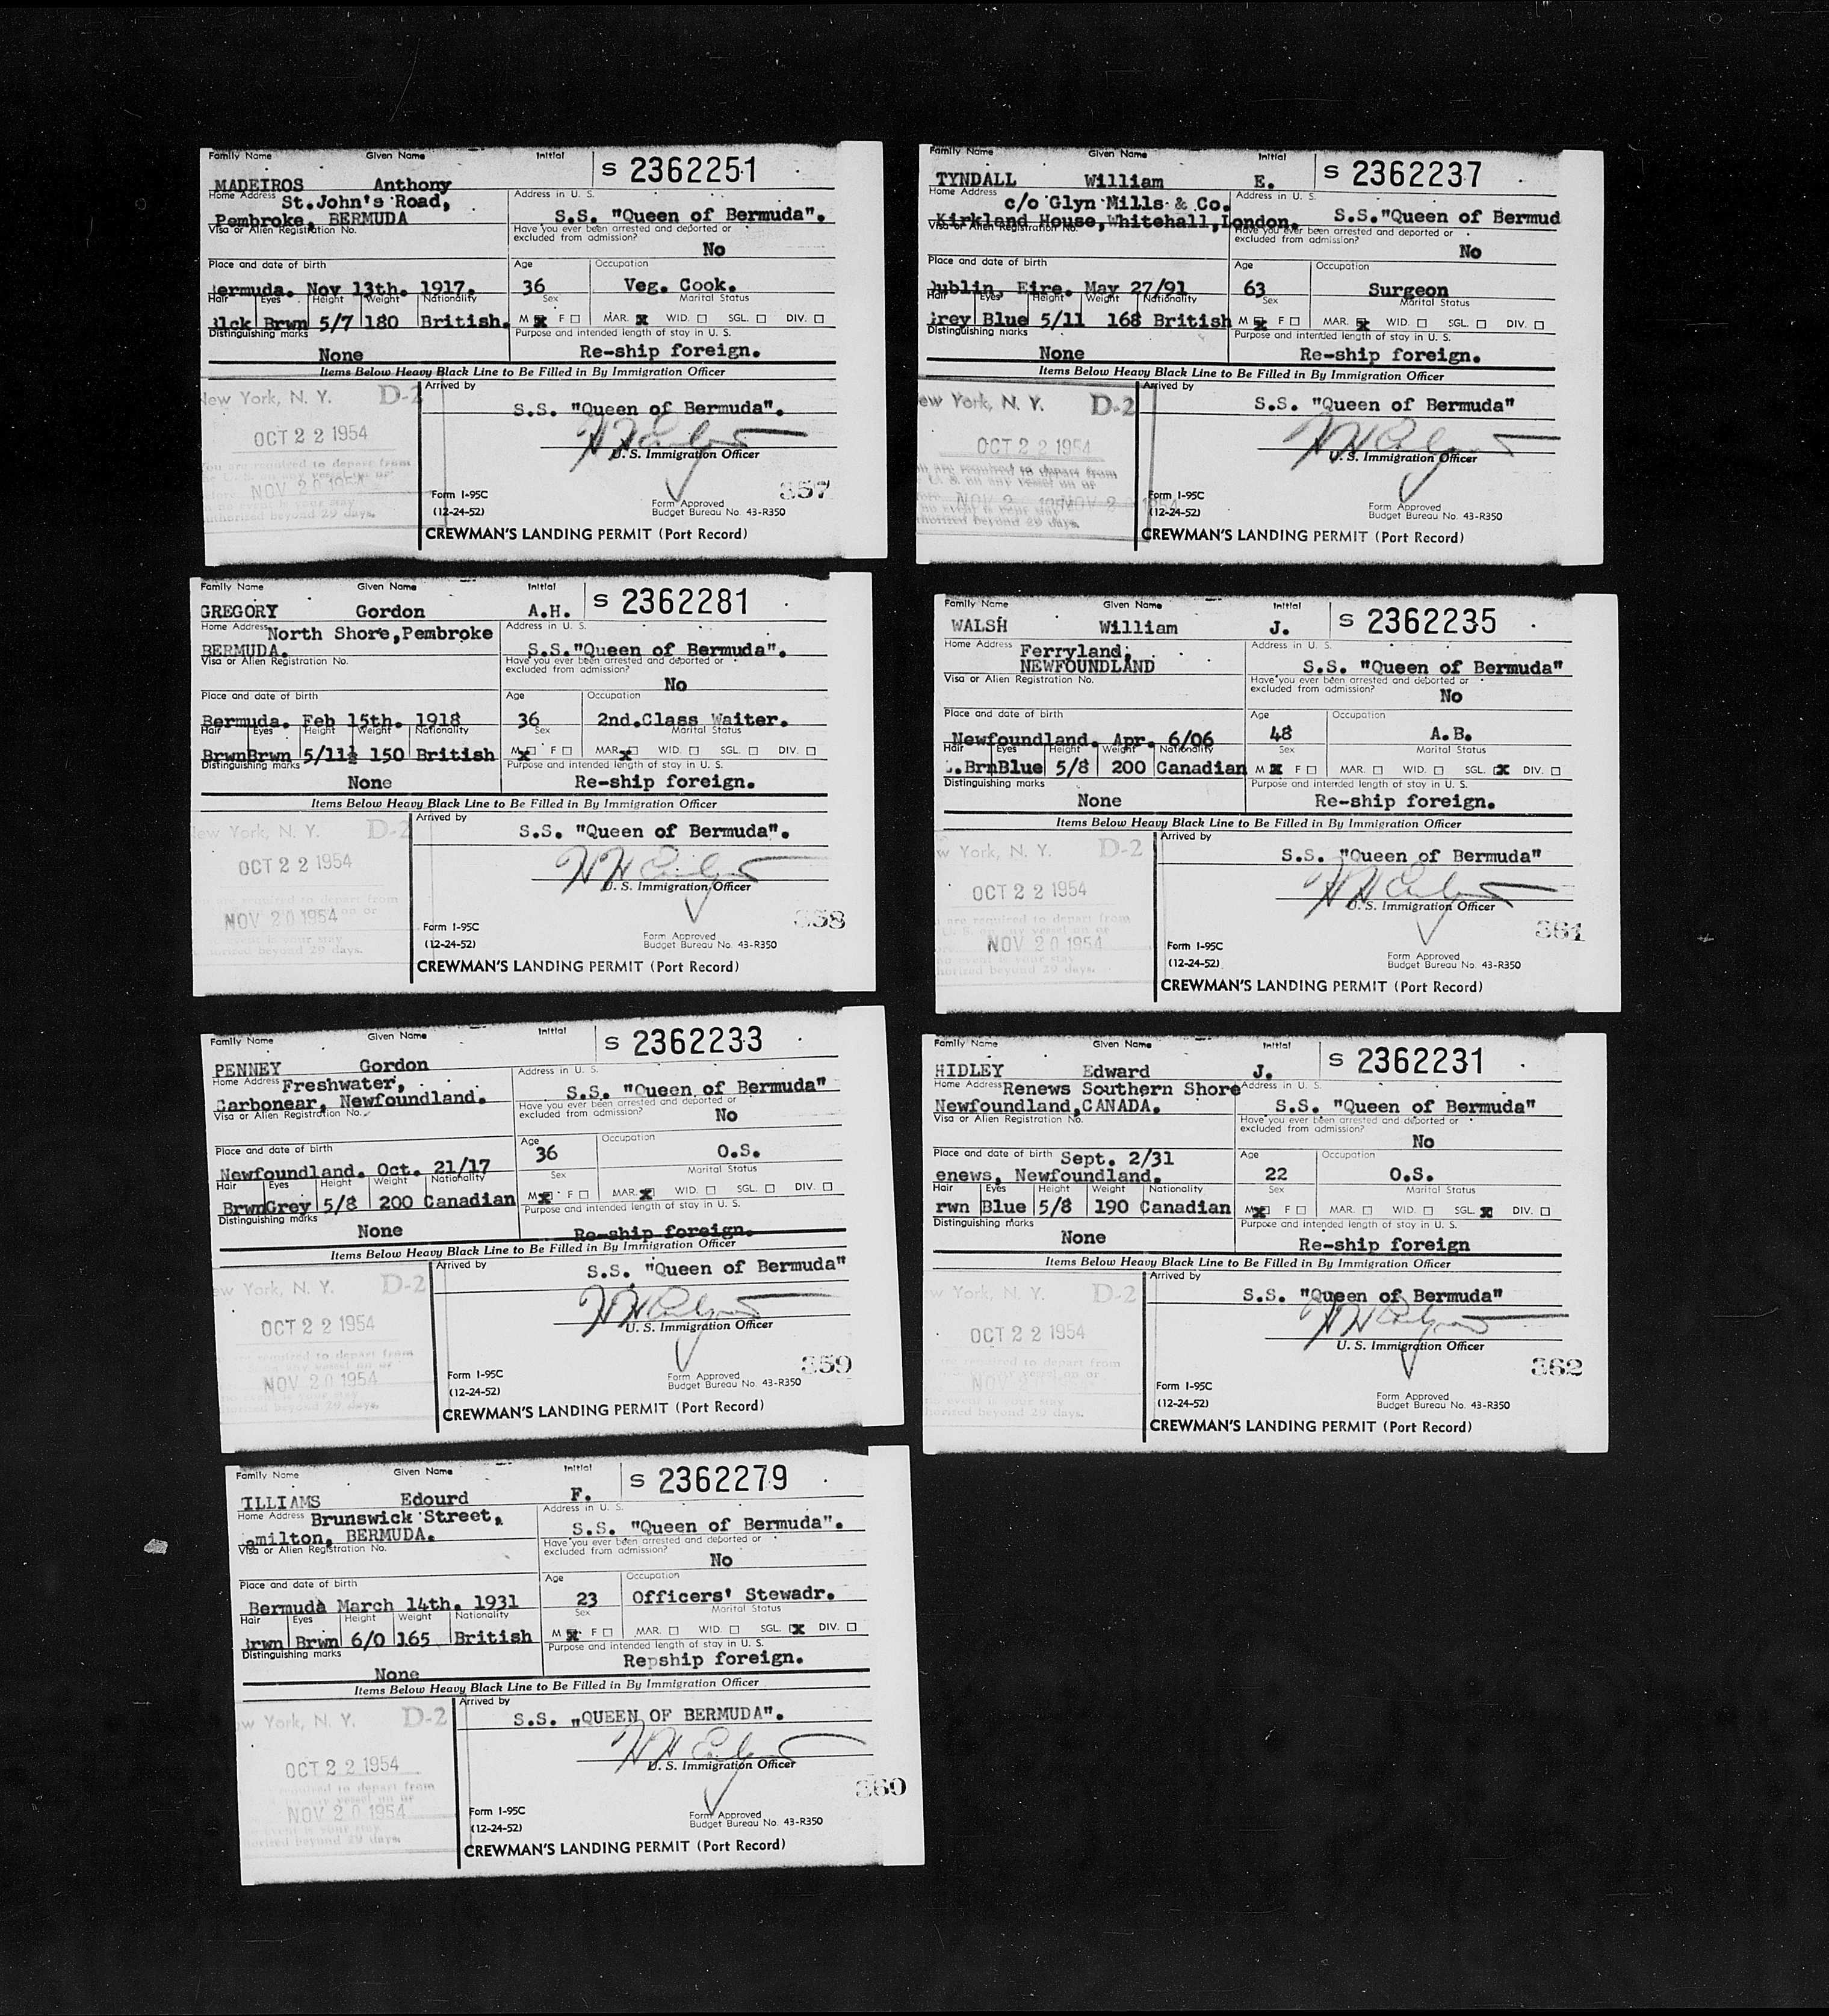 Family Name Given Name Initial S 2362251
MADEIROS Anthony
Home Address St.John's Road, Address in U. S.
Pembroke, BERMUDA S.S. "Queen of Bermuda".
Visa or Alien Registration No. Have you ever been arrested and deported or
excluded from admission?
No
Place and date of birth Age Occupation
ermuda. Nov 13th. 1917. 36 Veg. Cook.
Hair Eyes Height Weight Nationality Sex Marital Status
lck Brwn 5/7 180 British. M x F MAR. x WID. SGL. DIV.
Distinguishing marks Purpose and intended length of stay in U. S.
None Re-ship foreign.
Items Below Heavy Black Line to Be Filled in By Immigration Officer
New York, N. Y. D-2 Arrived by
S.S. "Queen of Bermuda".
OCT 22 1954
U. S. Immigration Officer
You are required to depart from
NOV 20 1954
no event is your stay
authorized beyond 29 days.
357
Form I-95C Form Approved
(12-24-52) Budget Bureau No. 43-R350
CREWMAN'S LANDING PERMIT (Port Record)
Family Name Given Name Initial S 2362281
GREGORY Gordon A.H.
Home Address North Shore,Pembroke Address in U. S.
BERMUDA. S.S."Queen of Bermuda".
Visa or Alien Registration No. Have you ever been arrested and deported or
excluded from admission?
No
Place and date of birth Age Occupation
Bermuda. Feb 15th. 1918 36 2nd.Class Waiter.
Hair Eyes Height Weight Nationality Sex Marital Status
BrwnBrwn 5/11½ 150 British M x F MAR. x WID. SGL. DIV.
Distinguishing marks Purpose and intended length of stay in U. S.
None Re-ship foreign.
Items Below Heavy Black Line to Be Filled in By Immigration Officer
ew York, N. Y. D-2 Arrived by
S.S. "Queen of Bermuda".
OCT 22 1954
U. S. Immigration Officer
are required to depart from
NOV 20 1954 on or
event is your stay
authorized beyond 29 days.
358
Form I-95C Form Approved
(12-24-52) Budget Bureau No. 43-R350
CREWMAN'S LANDING PERMIT (Port Record)
Family Name Given Name Initial S 2362233
PENNEY Gordon
Home Address Freshwater, Address in U. S.
Carbonear, Newfoundland. S.S. "Queen of Bermuda"
Visa or Alien Registration No. Have you ever been arrested and deported or
excluded from admission?
No
Place and date of birth Age Occupation
Newfoundland. Oct. 21/17 36 O.S.
Hair Eyes Height Weight Nationality Sex Marital Status
BrwnGrey 5/8 200 Canadian M x F MAR. x WID. SGL. DIV.
Distinguishing marks Purpose and intended length of stay in U. S.
None Re-ship foreign.
Items Below Heavy Black Line to Be Filled in By Immigration Officer
ew York, N. Y. D-2 Arrived by
S.S. "Queen of Bermuda"
OCT 22 1954
U. S. Immigration Officer
are required to depart from
any vessel on or
NOV 20 1954
is your stay
authorized beyond 29 days.
359
Form I-95C Form Approved
(12-24-52) Budget Bureau No. 43-R350
CREWMAN'S LANDING PERMIT (Port Record)
Family Name Given Name Initial S 2362279
ILLIAMS Edourd F.
Home Address Brunswick Street, Address in U. S.
amilton, BERMUDA. S.S. "Queen of Bermuda".
Visa or Alien Registration No. Have you ever been arrested and deported or
excluded from admission?
No
Place and date of birth Age Occupation
Bermuda March 14th. 1931 23 Officers' Stewadr.
Hair Eyes Height Weight Nationality Sex Marital Status
Brwn Brwn 6/0 165 British M x F MAR. WID. SGL. x DIV.
Distinguishing marks Purpose and intended length of stay in U. S.
None Repship foreign.
Items Below Heavy Black Line to Be Filled in By Immigration Officer
w York, N. Y. D-2 Arrived by
S.S. "QUEEN OF BERMUDA".
OCT 22 1954
U. S. Immigration Officer
required to depart from
vessel on or
NOV 20 1954
event is your stay
authorized beyond 29 days.
360
Form I-95C Form Approved
(12-24-52) Budget Bureau No. 43-R350
CREWMAN'S LANDING PERMIT (Port Record)
Family Name Given Name Initial S 2362237
TYNDALL William E.
Home Address c/o Glyn Mills & Co. Address in U. S.
Kirkland House,Whitehall,London. S.S."Queen of Bermud
Visa or Alien Registration No. Have you ever been arrested and deported or
excluded from admission?
No
Place and date of birth Age Occupation
Dublin, Eire. May 27/91 63 Surgeon
Hair Eyes Height Weight Nationality Sex Marital Status
Grey Blue 5/11 168 British M x F MAR. x WID. SGL. DIV.
Distinguishing marks Purpose and intended length of stay in U. S.
None Re-ship foreign.
Items Below Heavy Black Line to Be Filled in By Immigration Officer
ew York, N. Y. D-2 Arrived by
S.S. "Queen of Bermuda"
OCT 22 1954
U. S. Immigration Officer
are required to depart from
U. S. on any vessel on or
NOV 2 NOV 2
no event is your stay
authorized beyond 29 days.
Form I-95C Form Approved
(12-24-52) Budget Bureau No. 43-R350
CREWMAN'S LANDING PERMIT (Port Record)
Family Name Given Name Initial S 2362235
WALSH William J.
Home Address Ferryland, Address in U. S.
NEWFOUNDLAND S.S. "Queen of Bermuda"
Visa or Alien Registration No. Have you ever been arrested and deported or
excluded from admission?
No
Place and date of birth Age Occupation
Newfoundland. Apr. 6/06 48 A.B.
Hair Eyes Height Weight Nationality Sex Marital Status
.BrnBlue 5/8 200 Canadian M x F MAR. WID. SGL. x DIV.
Distinguishing marks Purpose and intended length of stay in U. S.
None Re-ship foreign.
Items Below Heavy Black Line to Be Filled in By Immigration Officer
w York, N. Y. D-2 Arrived by
S.S. "Queen of Bermuda"
OCT 22 1954
U. S. Immigration Officer
are required to depart from
NOV 20 1954
no event is your stay
authorized beyond 29 days.
361
Form I-95C Form Approved
(12-24-52) Budget Bureau No. 43-R350
CREWMAN'S LANDING PERMIT (Port Record)
Family Name Given Name Initial S 2362231
HIDLEY Edward J.
Home Address Renews Southern Shore Address in U. S.
Newfoundland,CANADA. S.S. "Queen of Bermuda"
Visa or Alien Registration No. Have you ever been arrested and deported or
excluded from admission?
No
Place and date of birth Sept. 2/31 Age Occupation
enews, Newfoundland. 22 O.S.
Hair Eyes Height Weight Nationality Sex Marital Status
rwn Blue 5/8 190 Canadian M x F MAR. WID. SGL. x DIV.
Distinguishing marks Purpose and intended length of stay in U. S.
None Re-ship foreign
Items Below Heavy Black Line to Be Filled in By Immigration Officer
w York, N. Y. D-2 Arrived by
S.S. "Queen of Bermuda"
OCT 22 1954
U. S. Immigration Officer
are required to depart from
NOV
no event is your stay
authorized beyond 29 days.
362
Form I-95C Form Approved
(12-24-52) Budget Bureau No. 43-R350
CREWMAN'S LANDING PERMIT (Port Record)